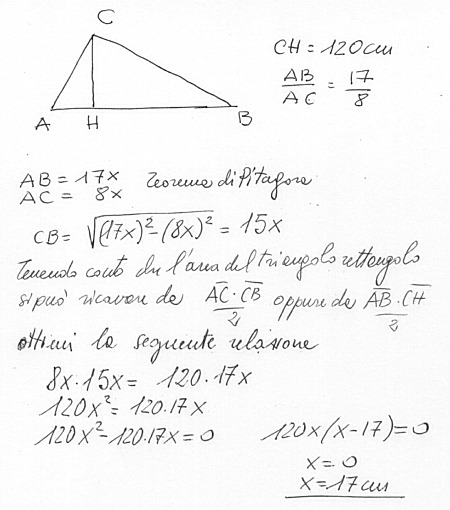 C
CH = 120 cm
AB/AC = 17/8
A H B
AB = 17x Teorema di Pitagora
AC = 8x
CB = √(17x)² - (8x)² = 15x
Tenendo conto che l'area del triangolo rettangolo
si può ricavare da AC·CB/2 oppure da AB·CH/2
ottieni la seguente relazione
8x·15x = 120·17x
120x² = 120·17x
120x² - 120·17x = 0 120x(x-17) = 0
x = 0
x = 17 cm